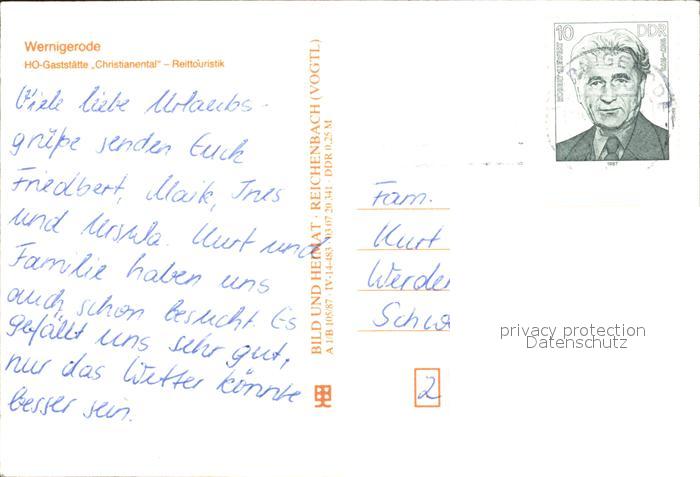 Wernigerode
HO-Gaststätte „Christianental" – Reittouristik
Viele liebe Urlaubs-
grüße senden Euch
Friedbert, Maik, Ines
und Ursula. Kurt und
Familie haben uns
auch schon besucht. Es
gefällt uns sehr gut,
nur das Wetter könnte
besser sein.
BILD UND HEIMAT · REICHENBACH (VOGTL)
A 1/B 105/87 · IV-14-483 · 03 07 20 341 · DDR 0,25 M
10 DDR
1987
Fam.
Kurt
Werder
Schw
2
privacy protection
Datenschutz